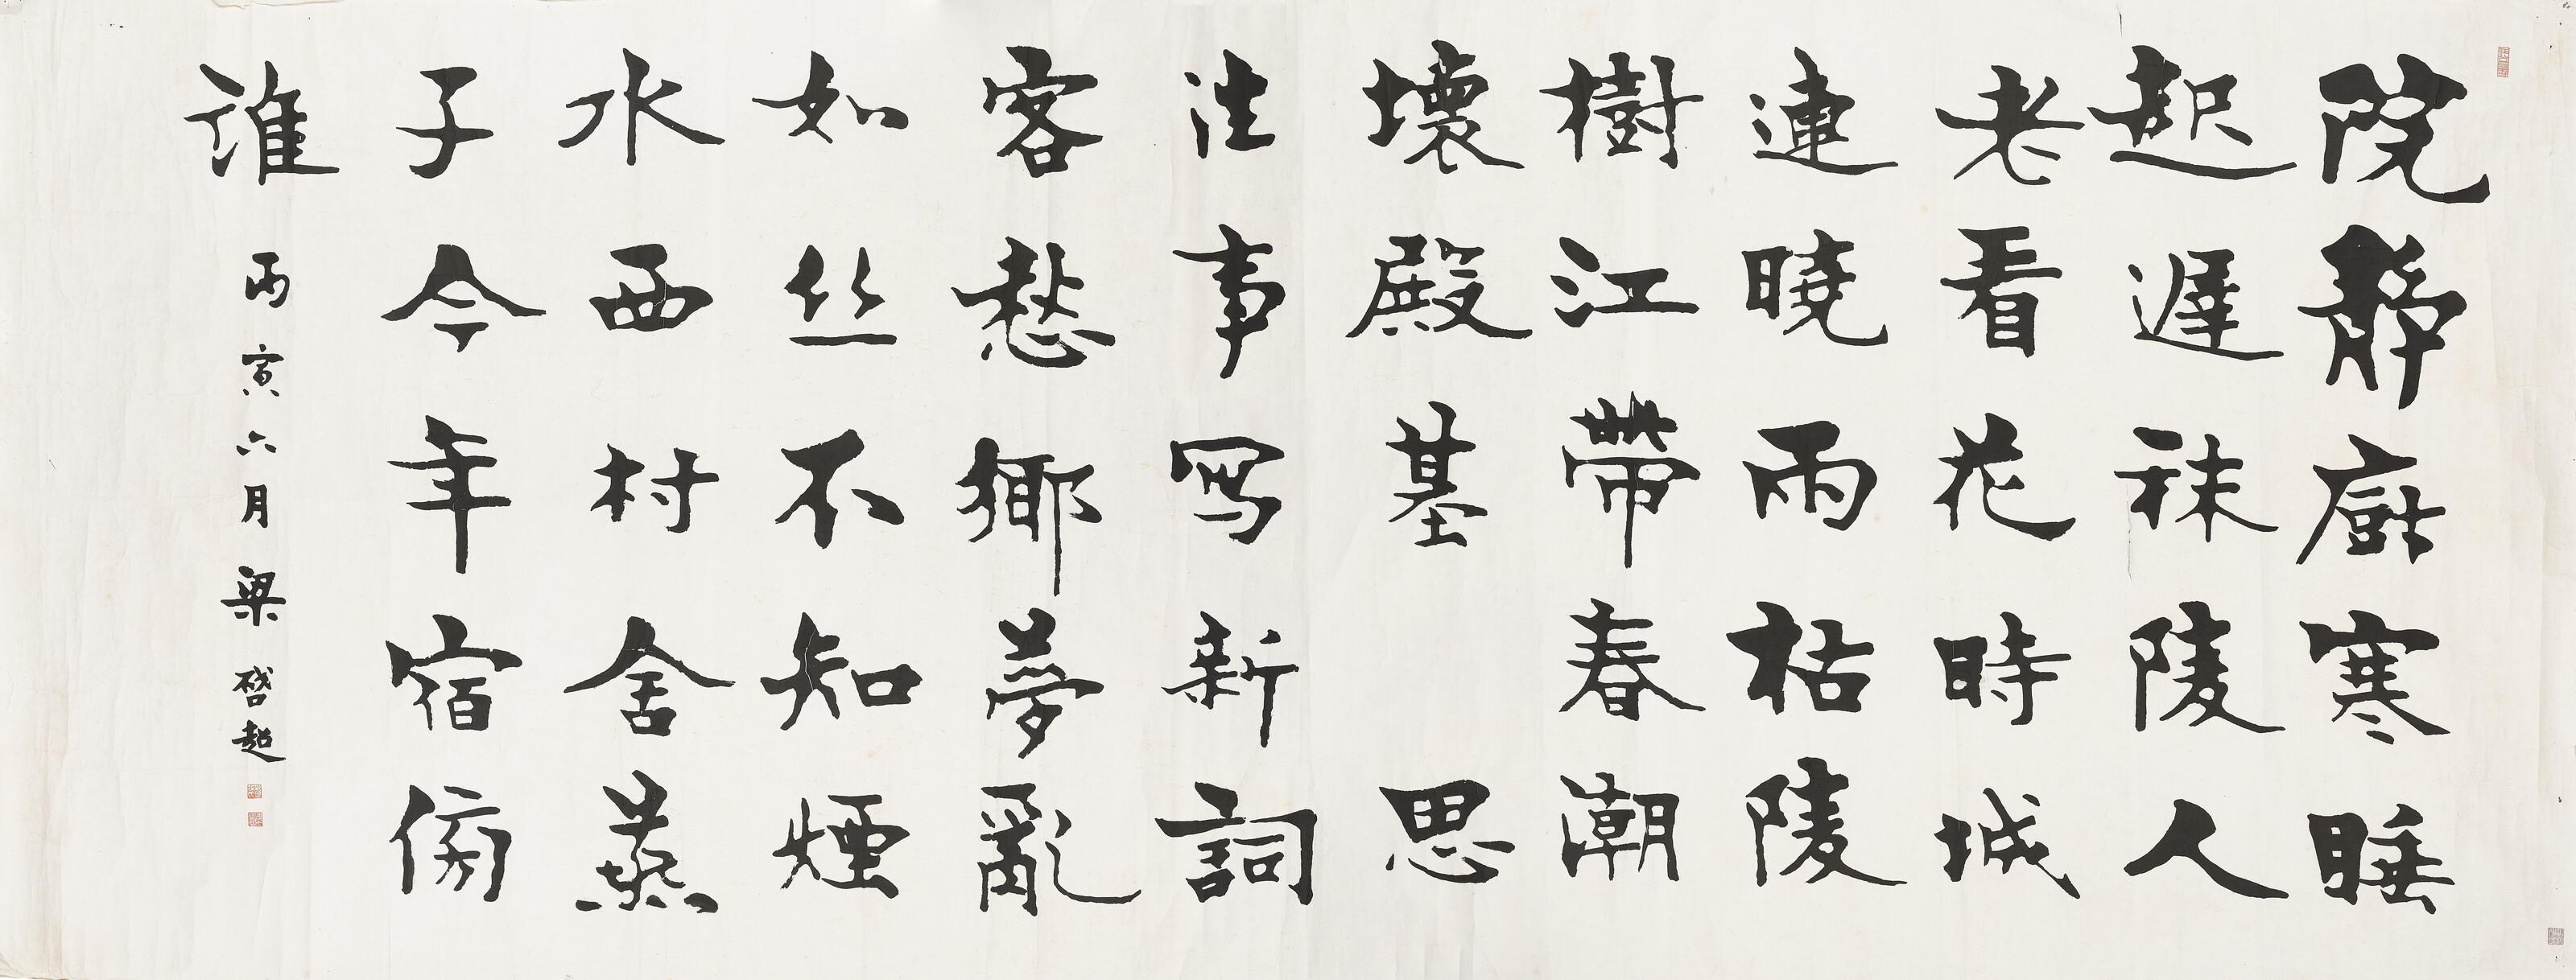 院靜廚寒睡
起遲秣陵人
老看花時城
連曉雨枯陵
樹江帶春潮
壞殿基 思
往事写新詞
客愁鄉夢亂
如丝不知煙
水西村舍燕
子今年宿傍
誰
丙寅六月梁啓超